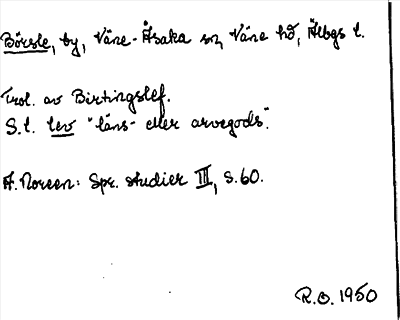 Börsle, by, Väne-Åsaka sn, Väne hd, Älbgs l.
Trol. av Birtingslef.
S.l. lev "läns- eller arvegods".
A. Noreen: Spr. studier III, s.60.
R.O. 1950